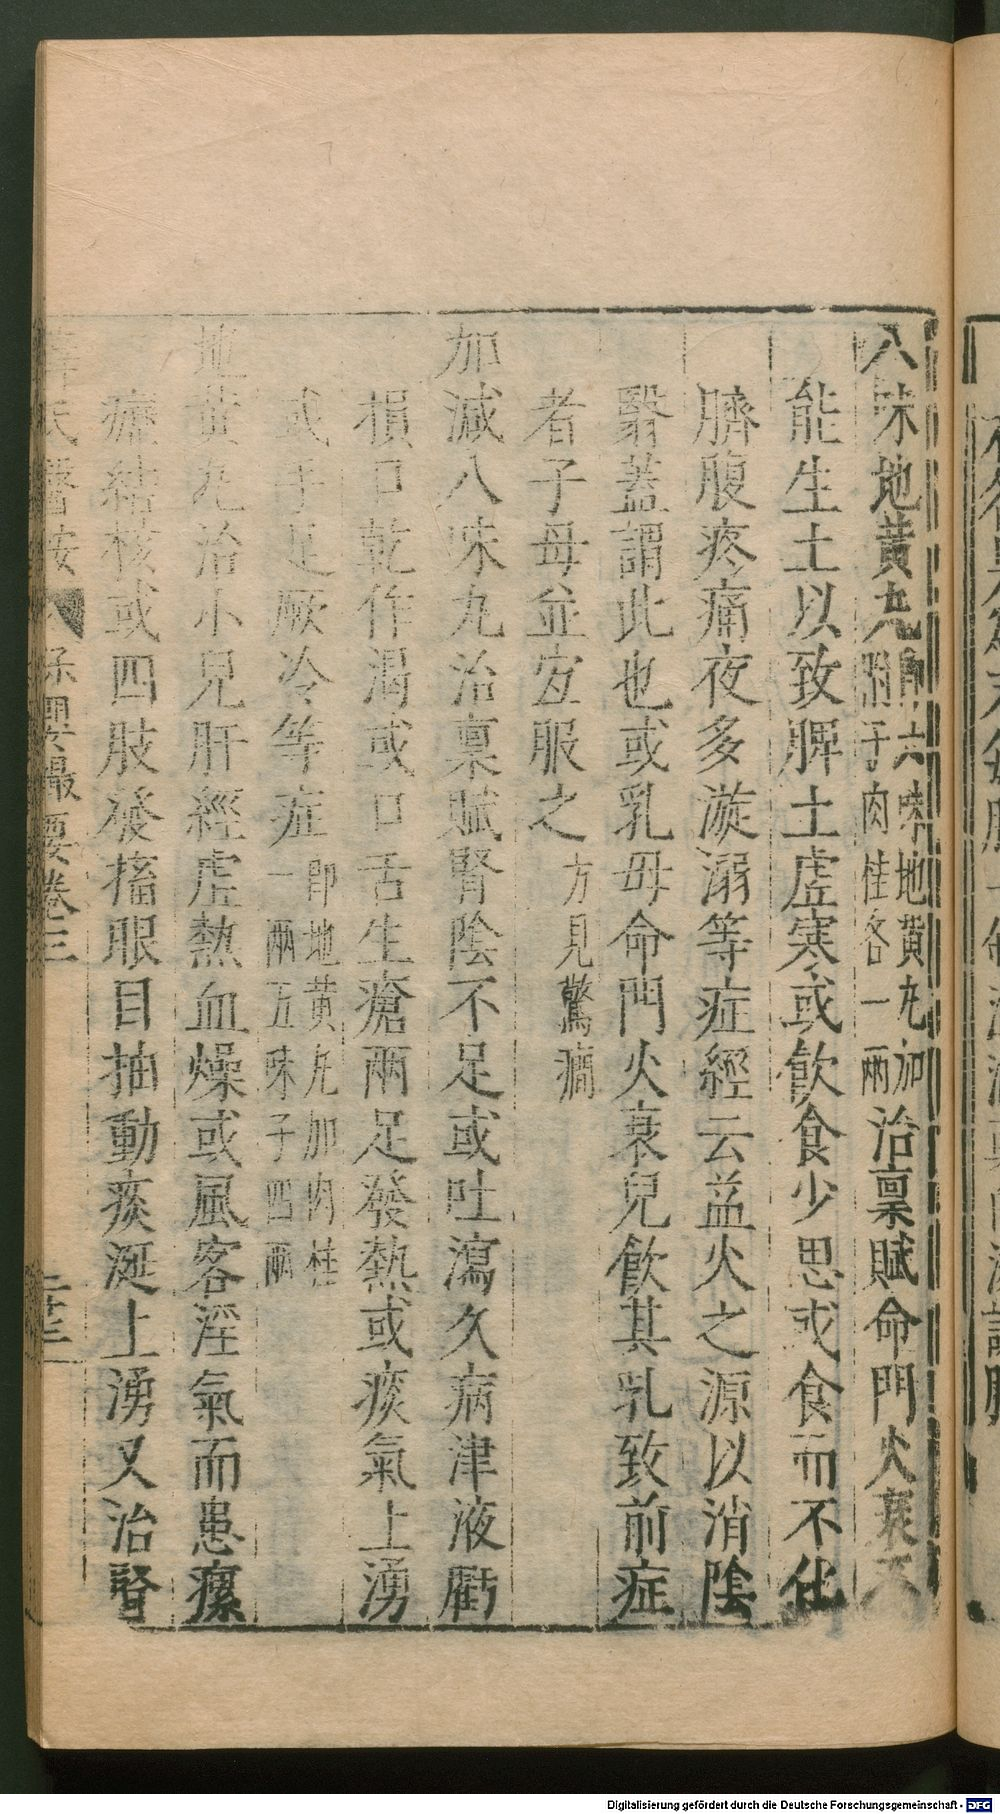 八味地黃丸 即六味地黃丸加附子肉桂各一兩 治禀賦命門火衰不
能生土以致脾土虛寒或飲食少思或食而不化
臍腹疼痛夜多漩溺等症經云益火之源以消陰
翳蓋謂此也或乳母命門火衰兒飲其乳致前症
者子母並宜服之 方見驚癎
加減八味丸治禀賦腎陰不足或吐瀉久病津液虧
損口乾作渴或口舌生瘡兩足發熱或痰氣上湧
或手足厥冷等症 即地黃丸加肉桂一兩五味子四兩
地黃丸治小兒肝經虛熱血燥或風客淫氣而患瘰
癧結核或四肢發搐眼目抽動痰涎上湧又治腎
薛氏醫按 保嬰撮要卷三 二十三
Digitalisierung gefördert durch die Deutsche Forschungsgemeinschaft - DFG